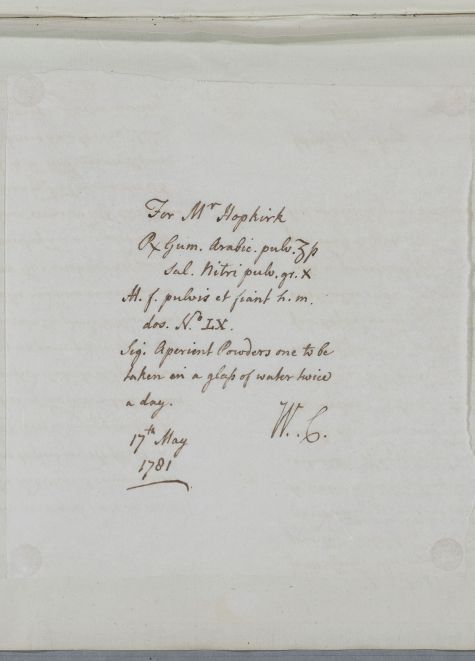 For Mr Hopkirk
℞ Gum. Arabic. pulv. ʒß
Sal. Nitri pulv. gr. X
M. f. pulvis et fiant h. m.
dos. No. LX.
Sig. Aperient Powders one to be
taken in a glaſs of water twice
a day.
W. C.
17th May
1781